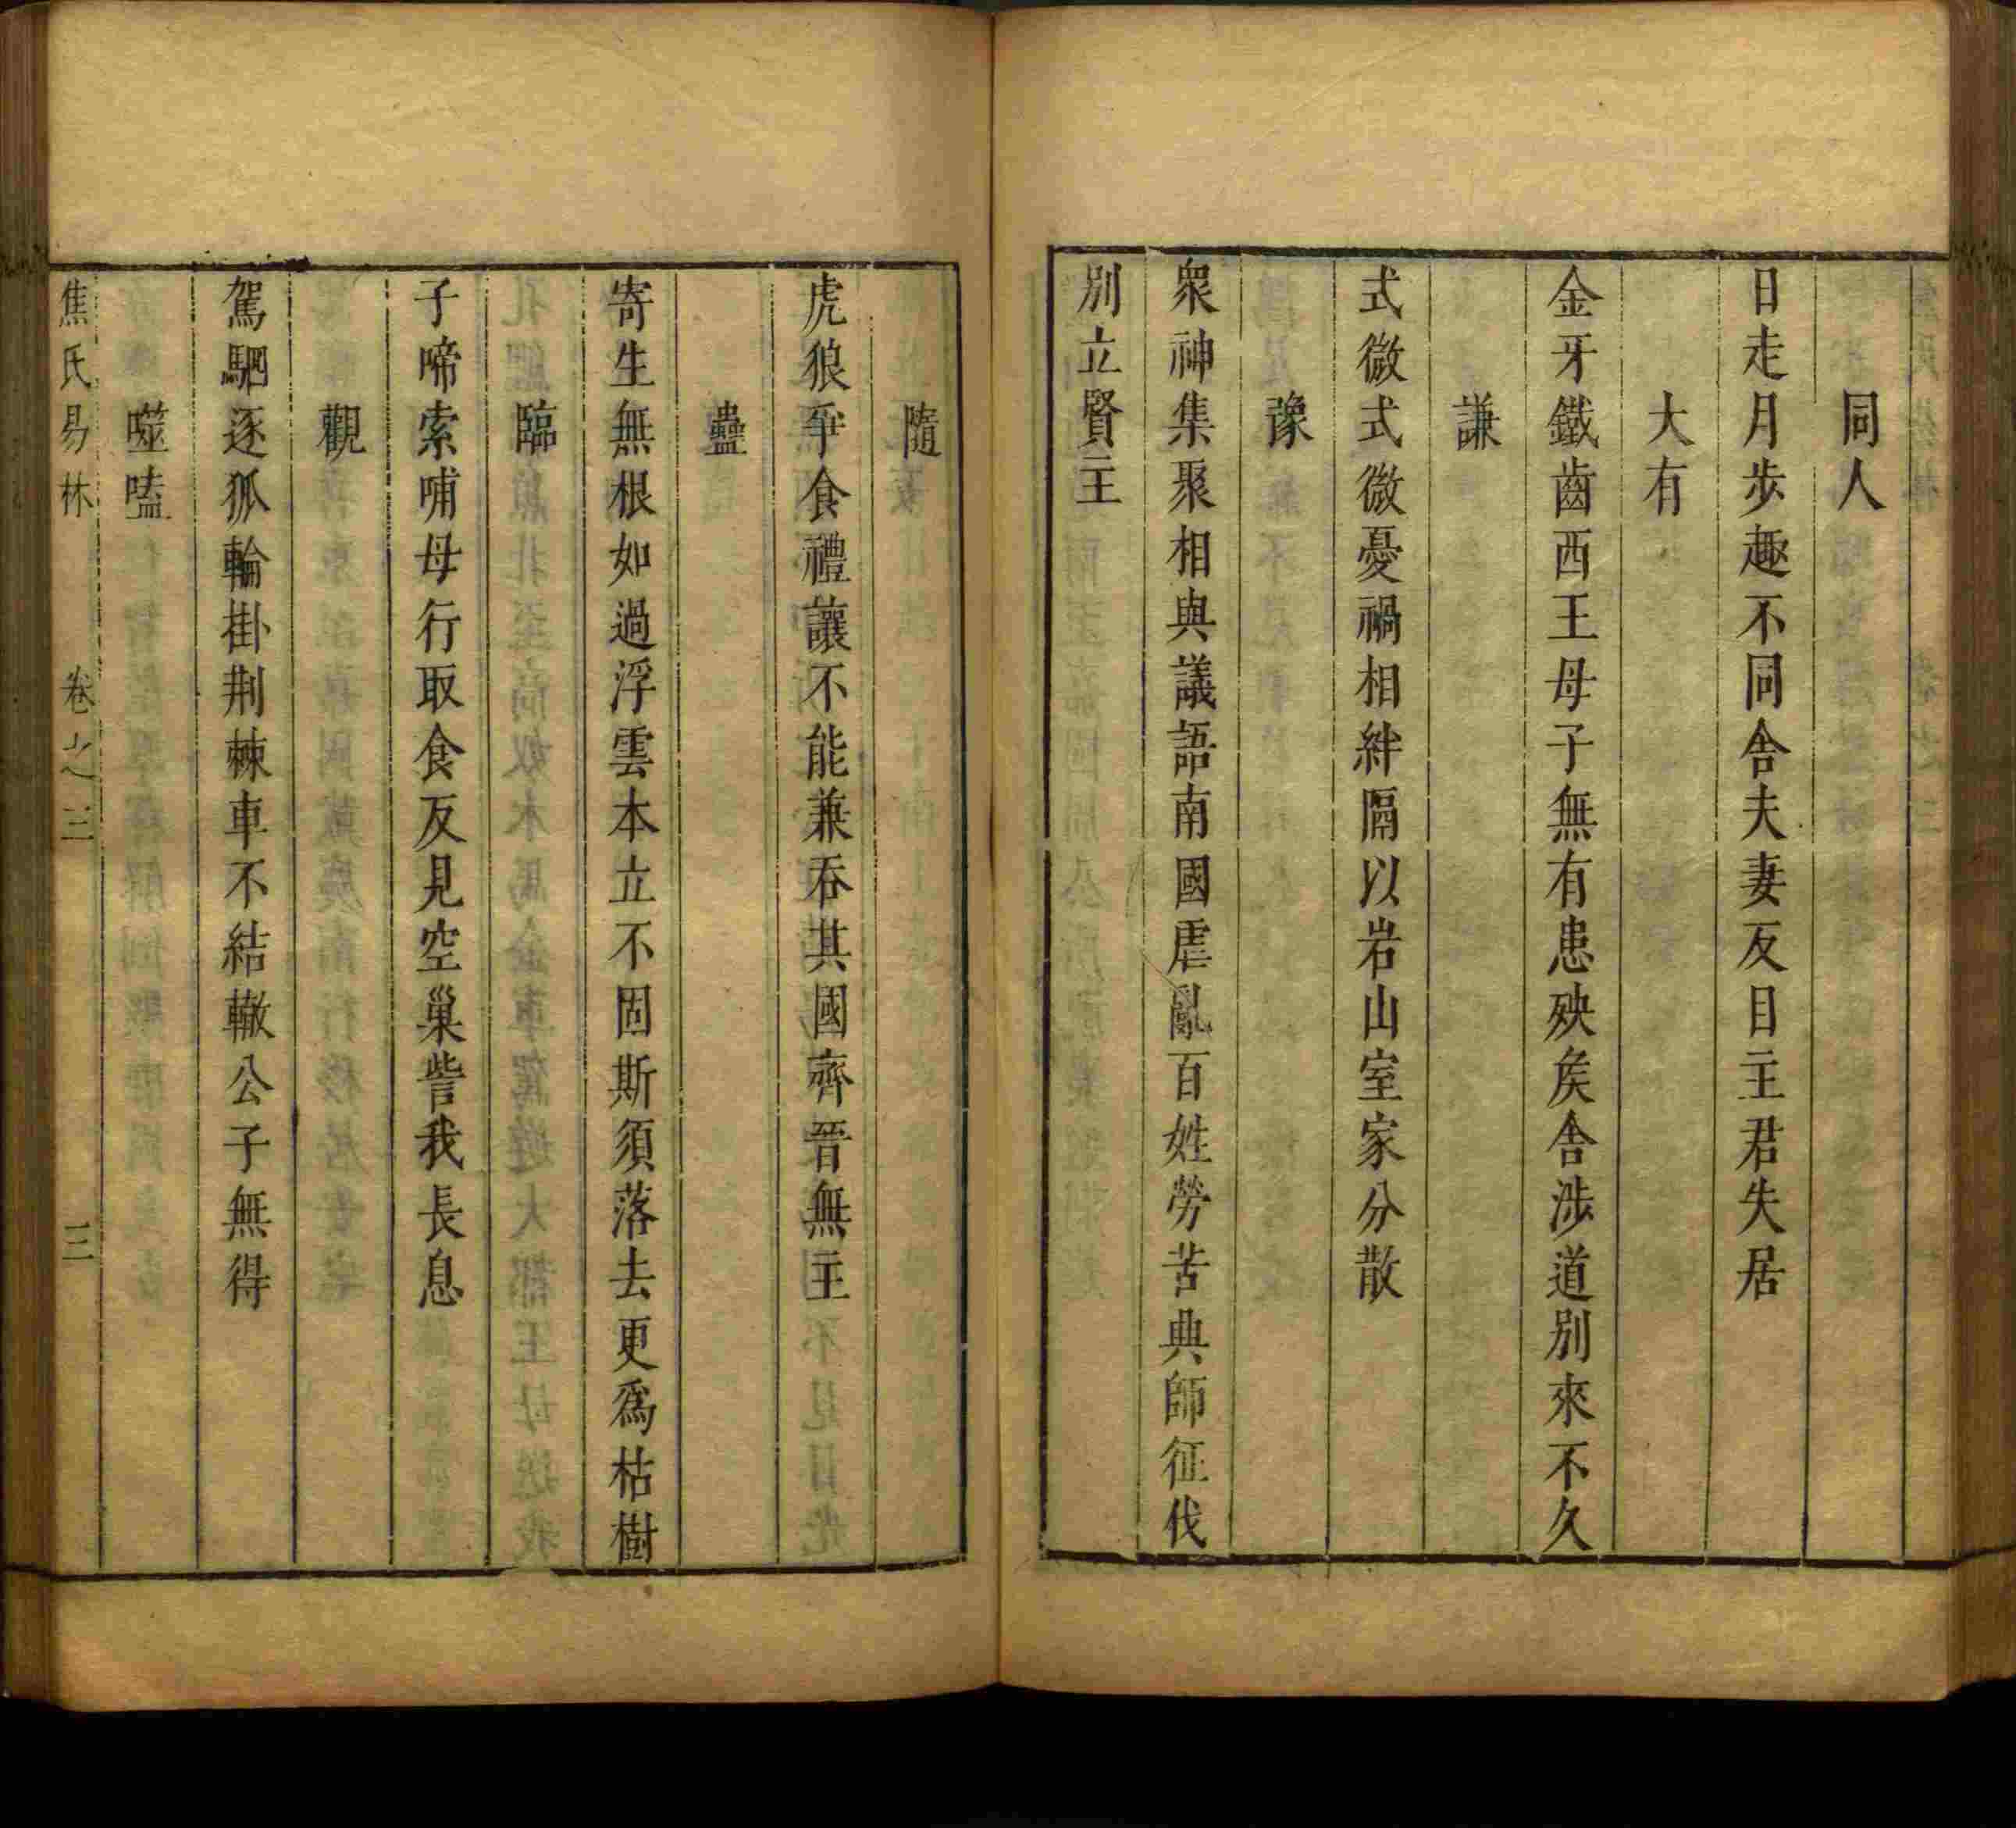 同人
日走月步趣不同舍夫妻反目主君失居
大有
金牙鐵齒西王母子無有患殃矦舍涉道別來不久
謙
式微式微憂禍相絆隔以岩山室家分散
豫
衆神集聚相與議語南國虐亂百姓勞苦典師征伐
別立賢主
隨
虎狼爭食禮讓不能兼吞其國齊晉無主
蠱
寄生無根如過浮雲本立不固斯須落去更爲枯樹
臨
子啼索哺母行取食反見空巢訾我長息
觀
駕駟逐狐輪掛荆棘車不結轍公子無得
噬嗑
焦氏易林 卷之三 三